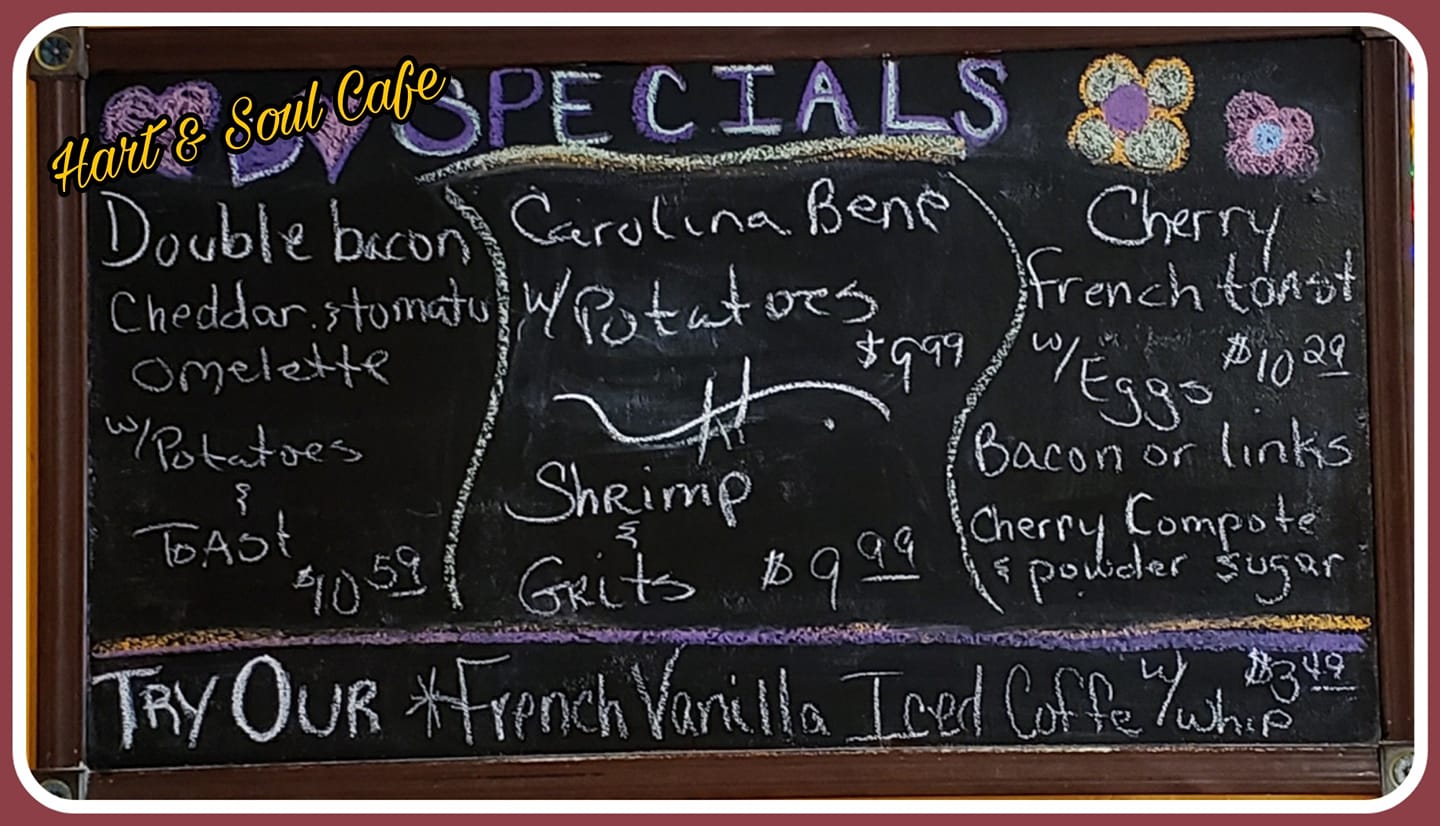 Hart & Soul Cafe
SPECIALS
Double bacon
Cheddar & tomato
omelette
w/Potatoes
&
ToASt
$10 59
Carolina Bene
w/Potatoes
$9 99
Shrimp
&
Grits $9 99
Cherry
french toast
w/Eggs $10 29
Bacon or links
Cherry Compote
& powder sugar
TRY OUR *French Vanilla Iced Coffe w/whip $3 49